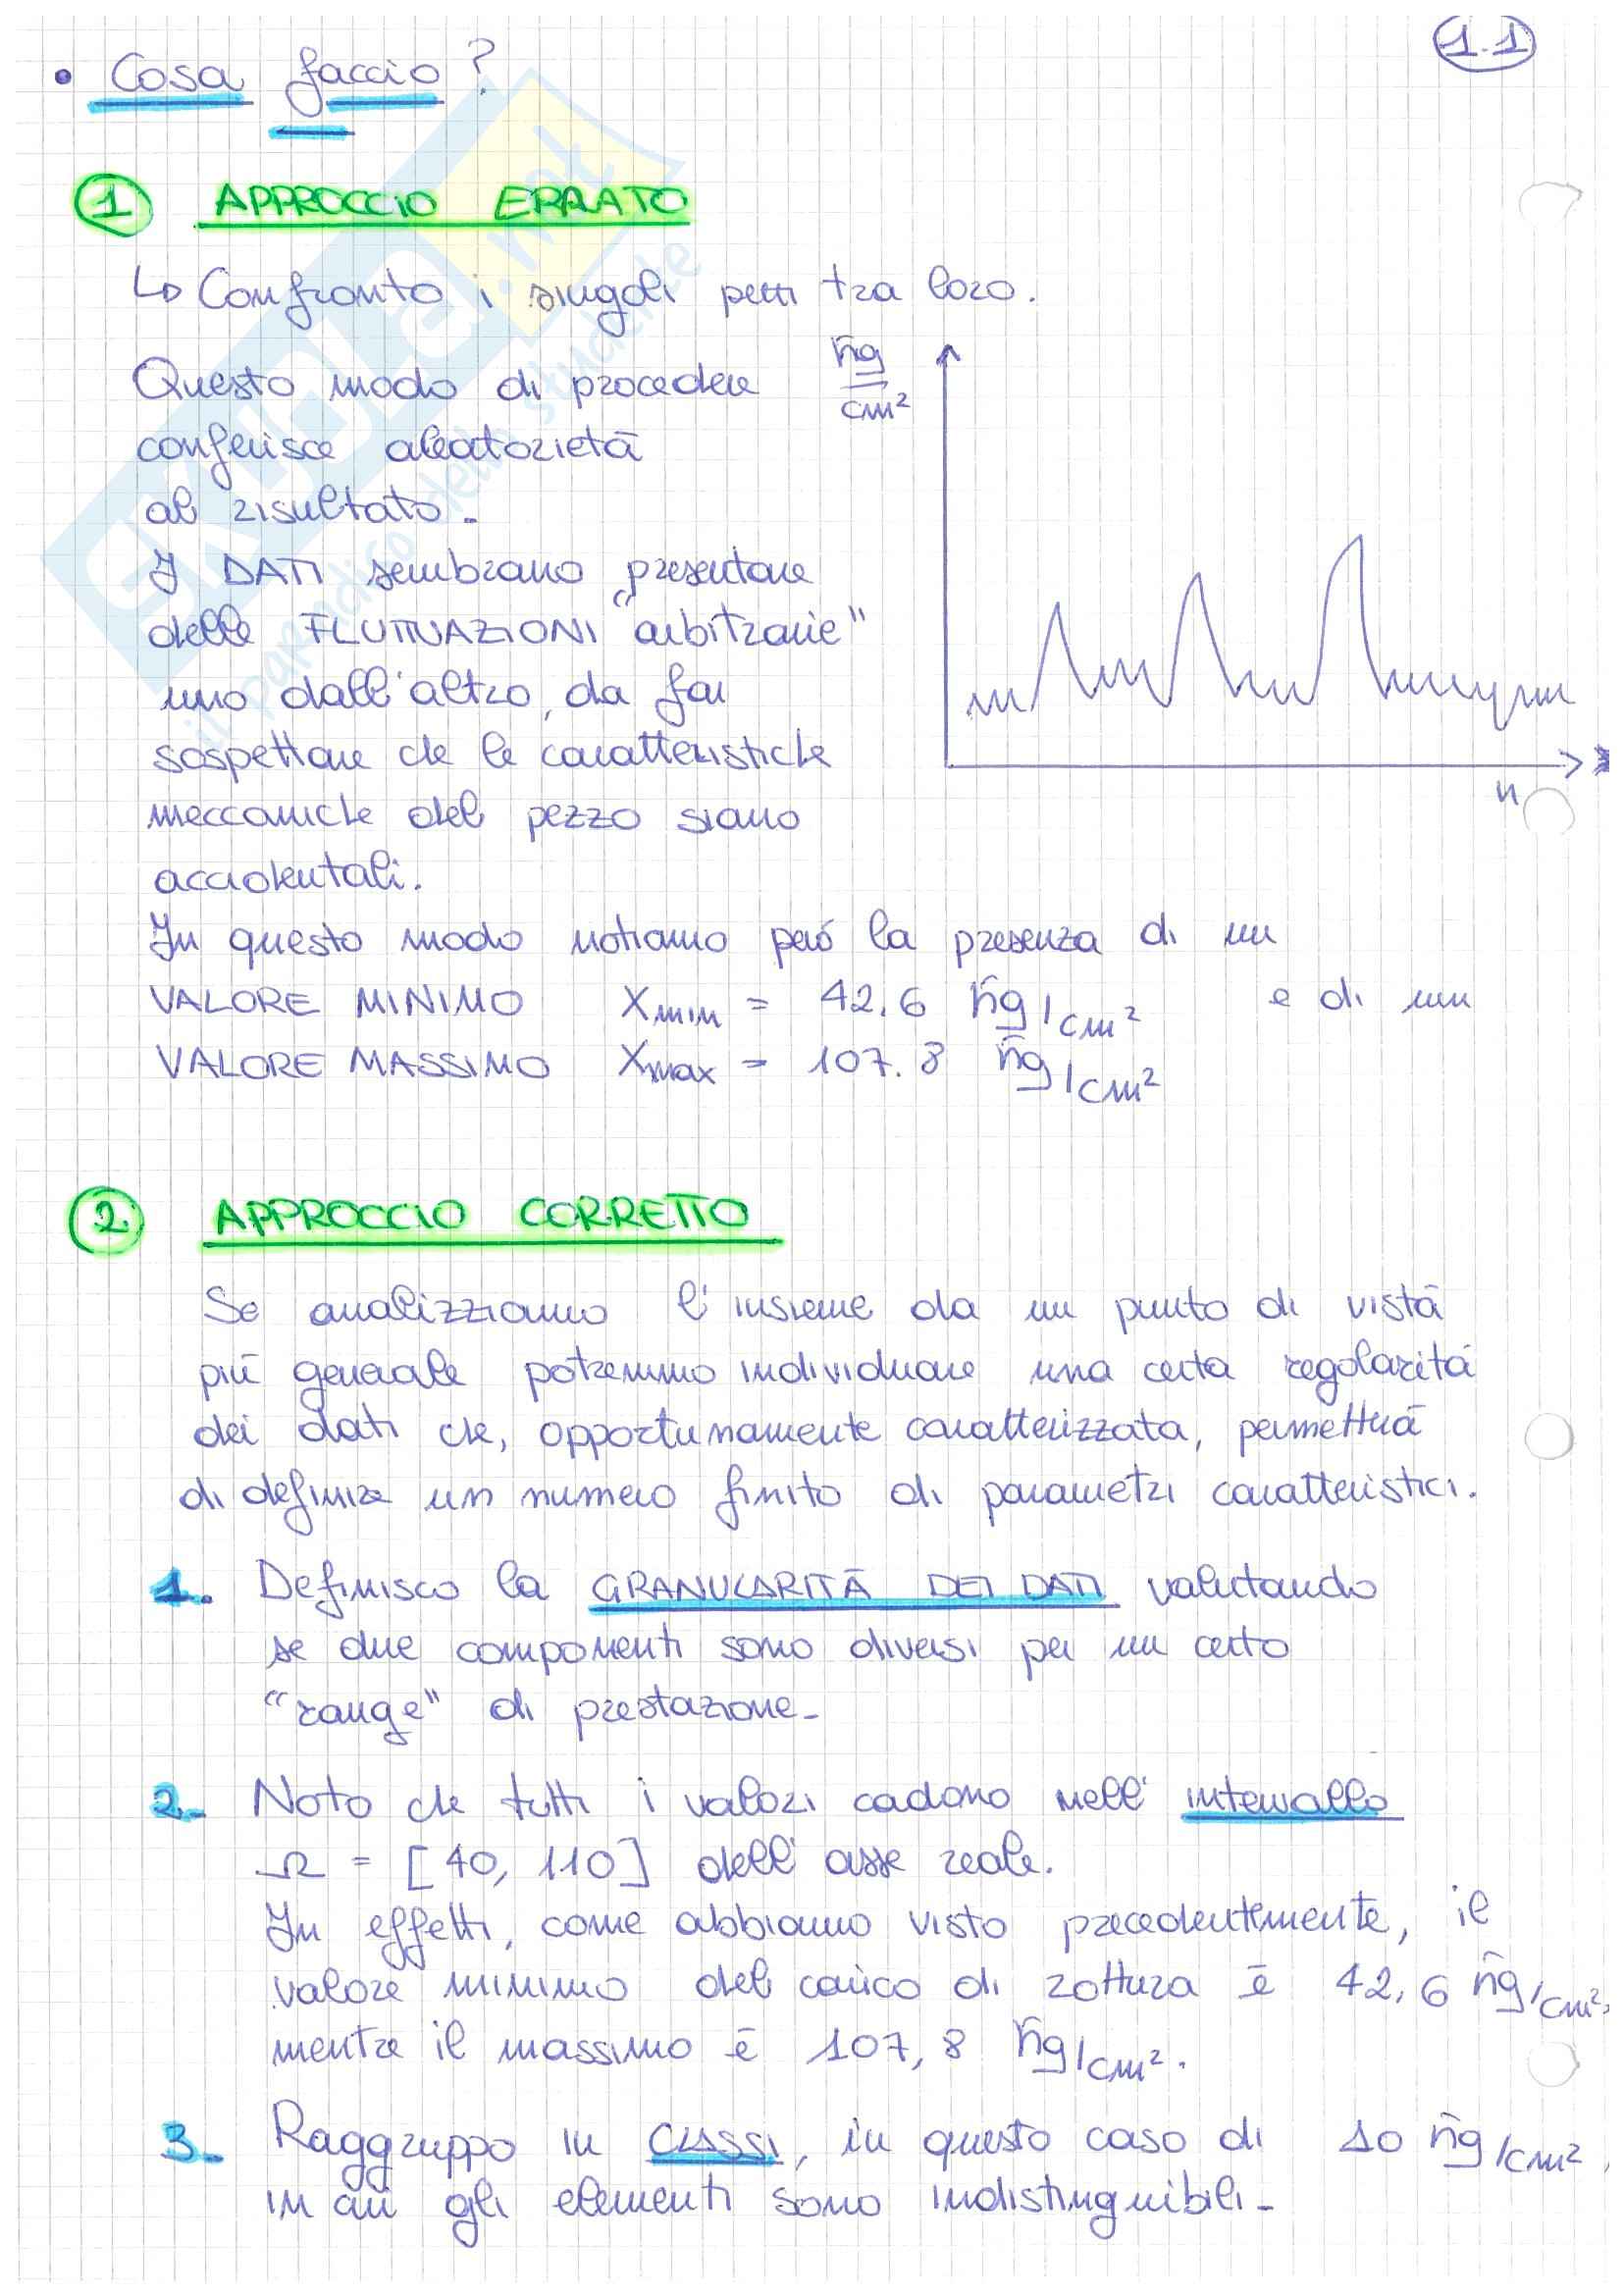 1.1
• Cosa faccio?
1 APPROCCIO ERRATO
↳ Confronto i singoli pezzi tra loro.
Questo modo di procedere
conferisce aleatorietà
al risultato.
I DATI sembrano presentare
delle FLUTTUAZIONI "arbitrarie"
uno dall'altro, da far
sospettare che le caratteristiche
meccaniche del pezzo siano
accidentali.
kg
cm²
n
In questo modo notiamo però la presenza di un
VALORE MINIMO Xmin = 42,6 kg/cm² e di un
VALORE MASSIMO Xmax = 107.8 kg/cm²
2 APPROCCIO CORRETTO
Se analizziamo l'insieme da un punto di vista
più generale potremmo individuare una certa regolarità
dei dati che, opportunamente caratterizzata, permetterà
di definire un numero finito di parametri caratteristici.
1. Definisco la GRANULARITÀ DEI DATI valutando
se due componenti sono diversi per un certo
"range" di prestazione.
2. Noto che tutti i valori cadono nell'intervallo
Ω = [40, 110] dell'asse reale.
In effetti, come abbiamo visto precedentemente, il
valore minimo del carico di rottura è 42,6 kg/cm²,
mentre il massimo è 107,8 kg/cm².
3. Raggruppo in CLASSI, in questo caso di 10 kg/cm²,
in cui gli elementi sono indistinguibili.